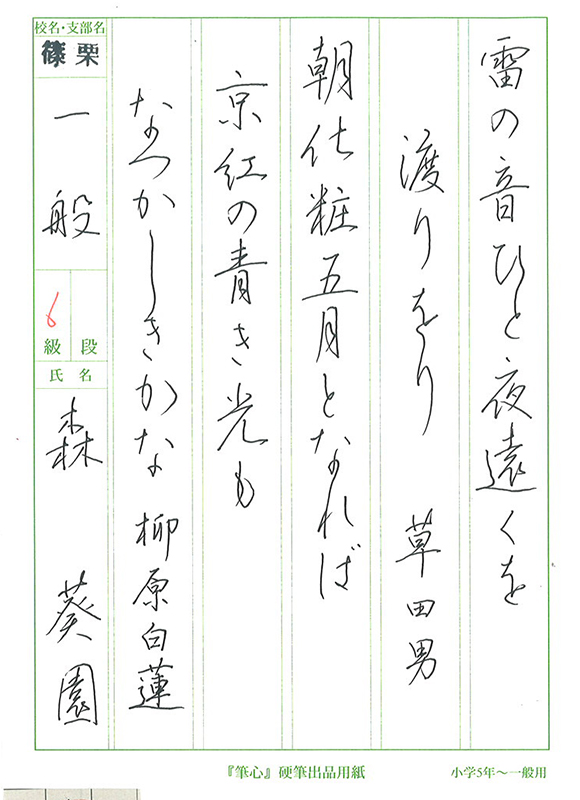 雷の音ひと夜遠くを
渡りをり 草田男
朝化粧五月となれば
京紅の青き光も
なつかしきかな 柳原白蓮
校名・支部名
篠栗
一般
6
級 段
氏名
森 葵園
『筆心』硬筆出品用紙
小学5年〜一般用